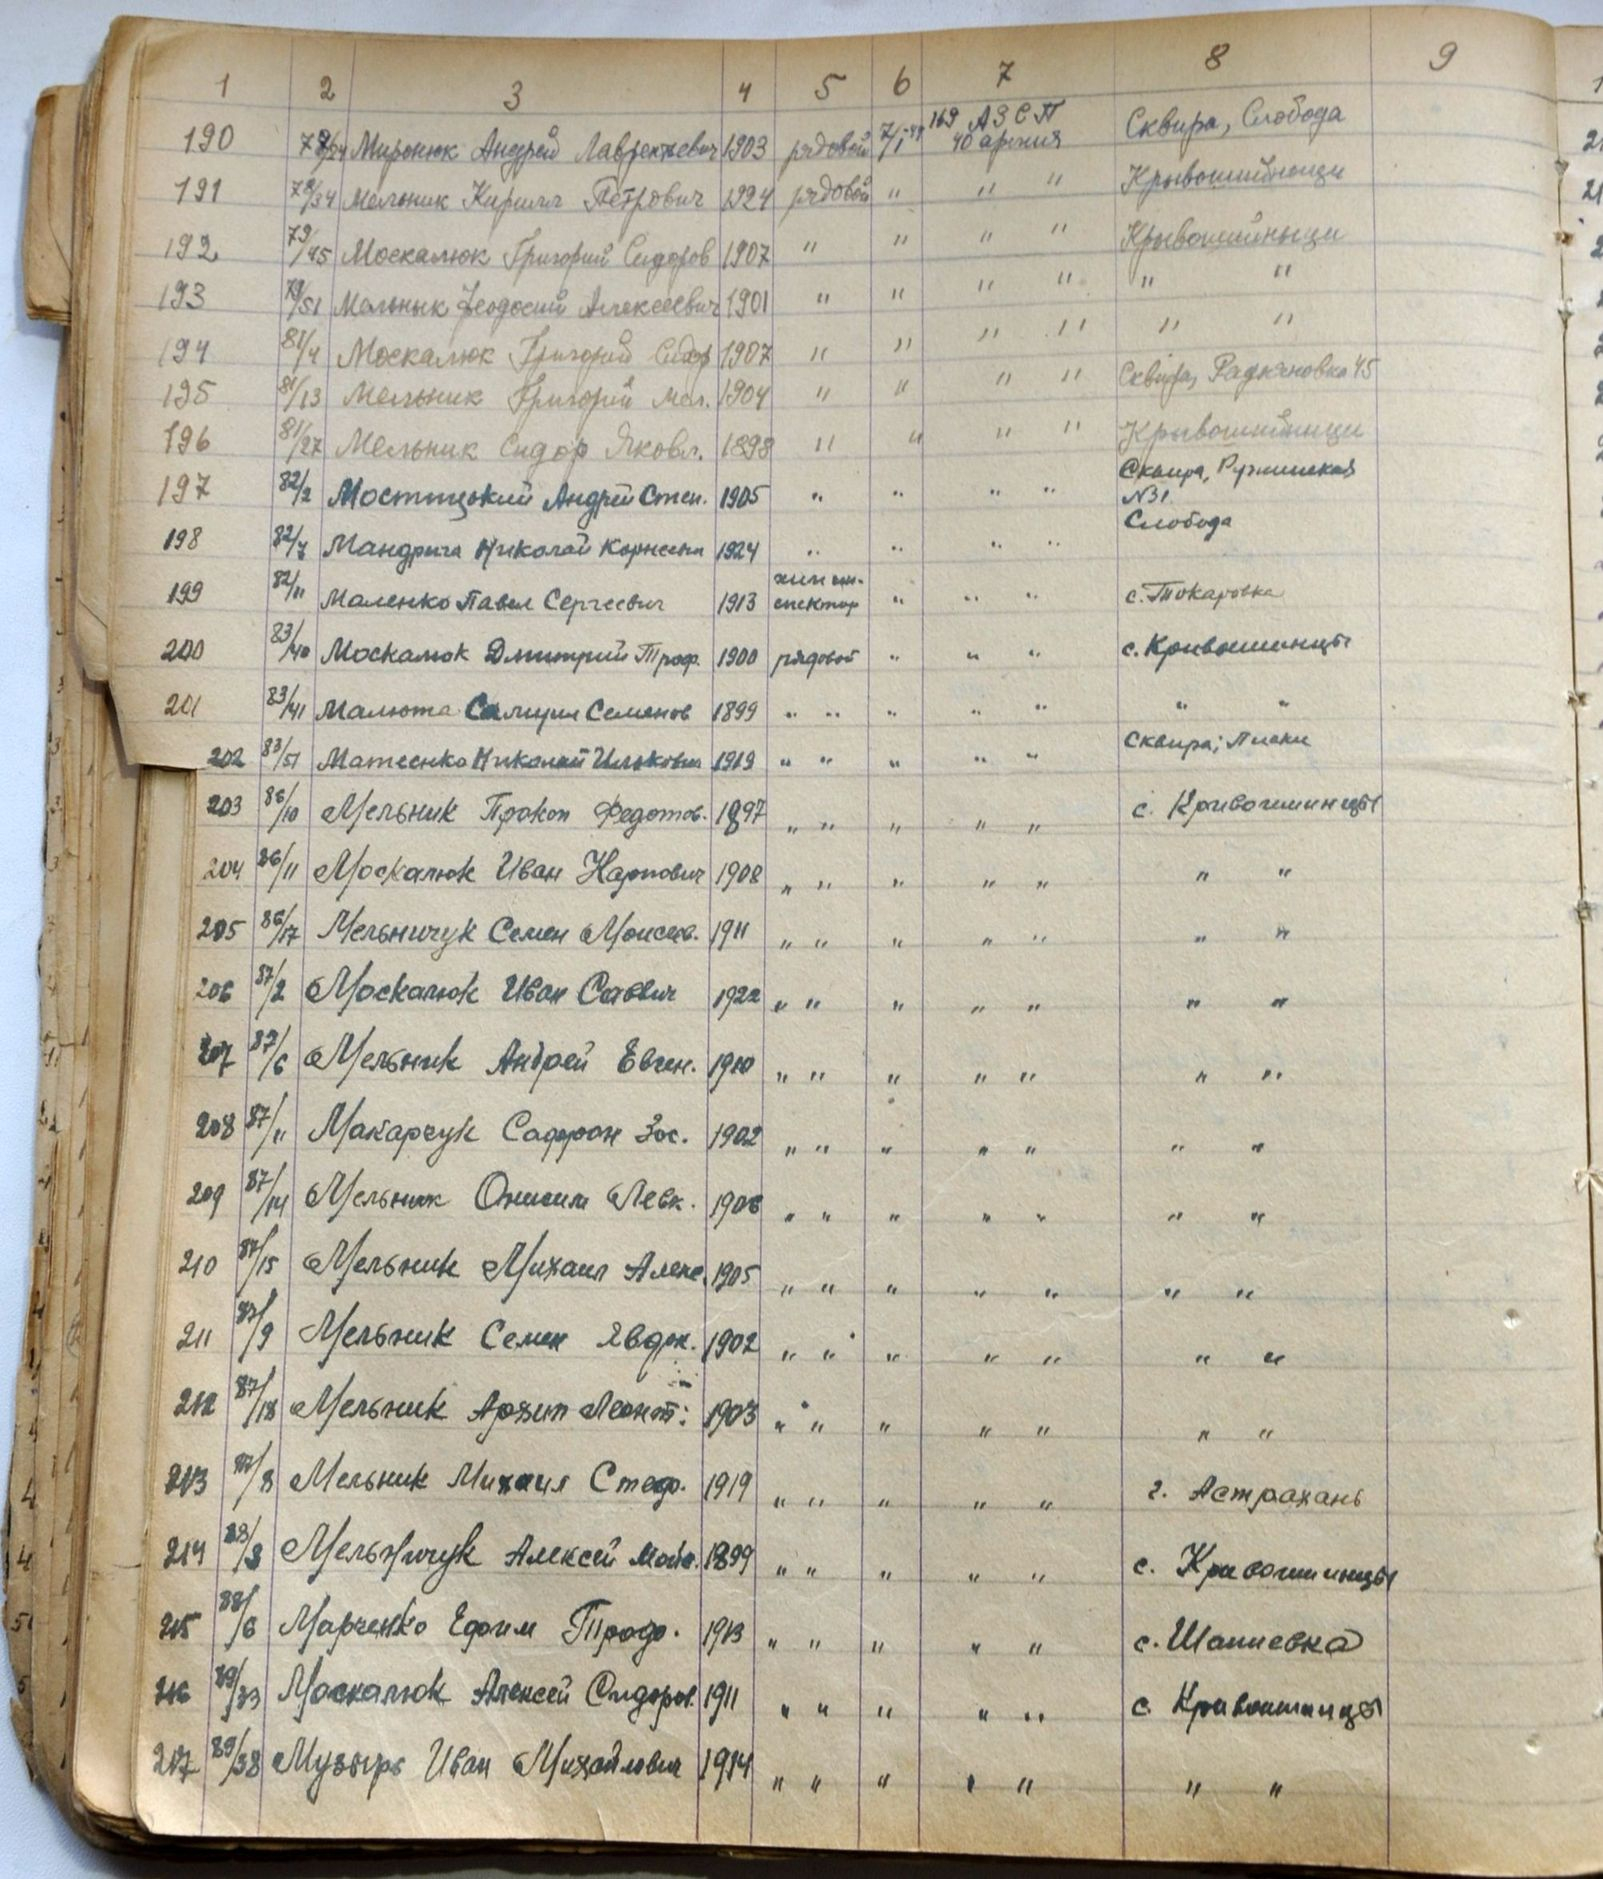 1 2 3 4 5 6 7 8 9
190 Миронюк Андрей Лаврентьевич 1903 рядовой 7/I-44 169 АЗСП 40 армия Сквира, Слобода
191 79/34 Мельник Кирилл Петрович 1924 рядовой " " " Крывошийныци
192 79/45 Москалюк Григорий Сидоров 1907 " " " " Крывошийныци
193 79/51 Мельнык Феодосий Алексеевич 1901 " " " " " "
194 81/4 Москалюк Григорий Сидор 1907 " " " " " "
195 81/13 Мельник Григорий 1904 " " " " Сквира, 45
196 81/27 Мельник Сидор Яковл. 1898 " " " " Крывошийныци
197 82/2 Мостицкий Андрей Степ. 1905 " " " " Сквира, Ружинская №31
198 82/7 Мандрига Николай 1924 " " " " Слобода
199 82/11 Маленко Павел Сергеевич 1913 " " " с. Токаровка
200 83/40 Москалюк Дмитрий Троф. 1900 рядовой " " " с. Кривошиинцы
201 83/41 Малюта Семенов 1899 " " " " " " "
202 83/51 Матеенко Николай Илькович 1919 " " " " " Сквира; Писки
203 86/10 Мельник Прокоп Федотов. 1897 " " " " " с. Кривошиинцы
204 86/11 Москалюк Иван Карпович 1908 " " " " " " "
205 86/17 Мельничук Семен Моисеев. 1911 " " " " " " "
206 87/2 Москалюк Иван Саввич 1922 " " " " " " "
207 87/6 Мельник Андрей Евген. 1910 " " " " " " "
208 87/11 Макарчук Сафрон Зос. 1902 " " " " " " "
209 87/14 Мельник Онисим Левк. 1906 " " " " " " "
210 87/15 Мельник Михаил Алекс. 1905 " " " " " " "
211 87/9 Мельник Семен Явдок. 1902 " " " " " " "
212 87/18 Мельник Архип Леонт. 1903 " " " " " " "
213 87/8 Мельник Михаил Стеф. 1919 " " " " " г. Астрахань
214 88/3 Мельничук Алексей Мойс. 1899 " " " " " с. Кривошиинцы
215 88/6 Марченко Ефим Троф. 1913 " " " " " с. Шапиевка
216 89/33 Москалюк Алексей Сидоров. 1911 " " " " " с. Кривошиинцы
217 89/38 Музырь Иван Михайлович 1914 " " " " " " "